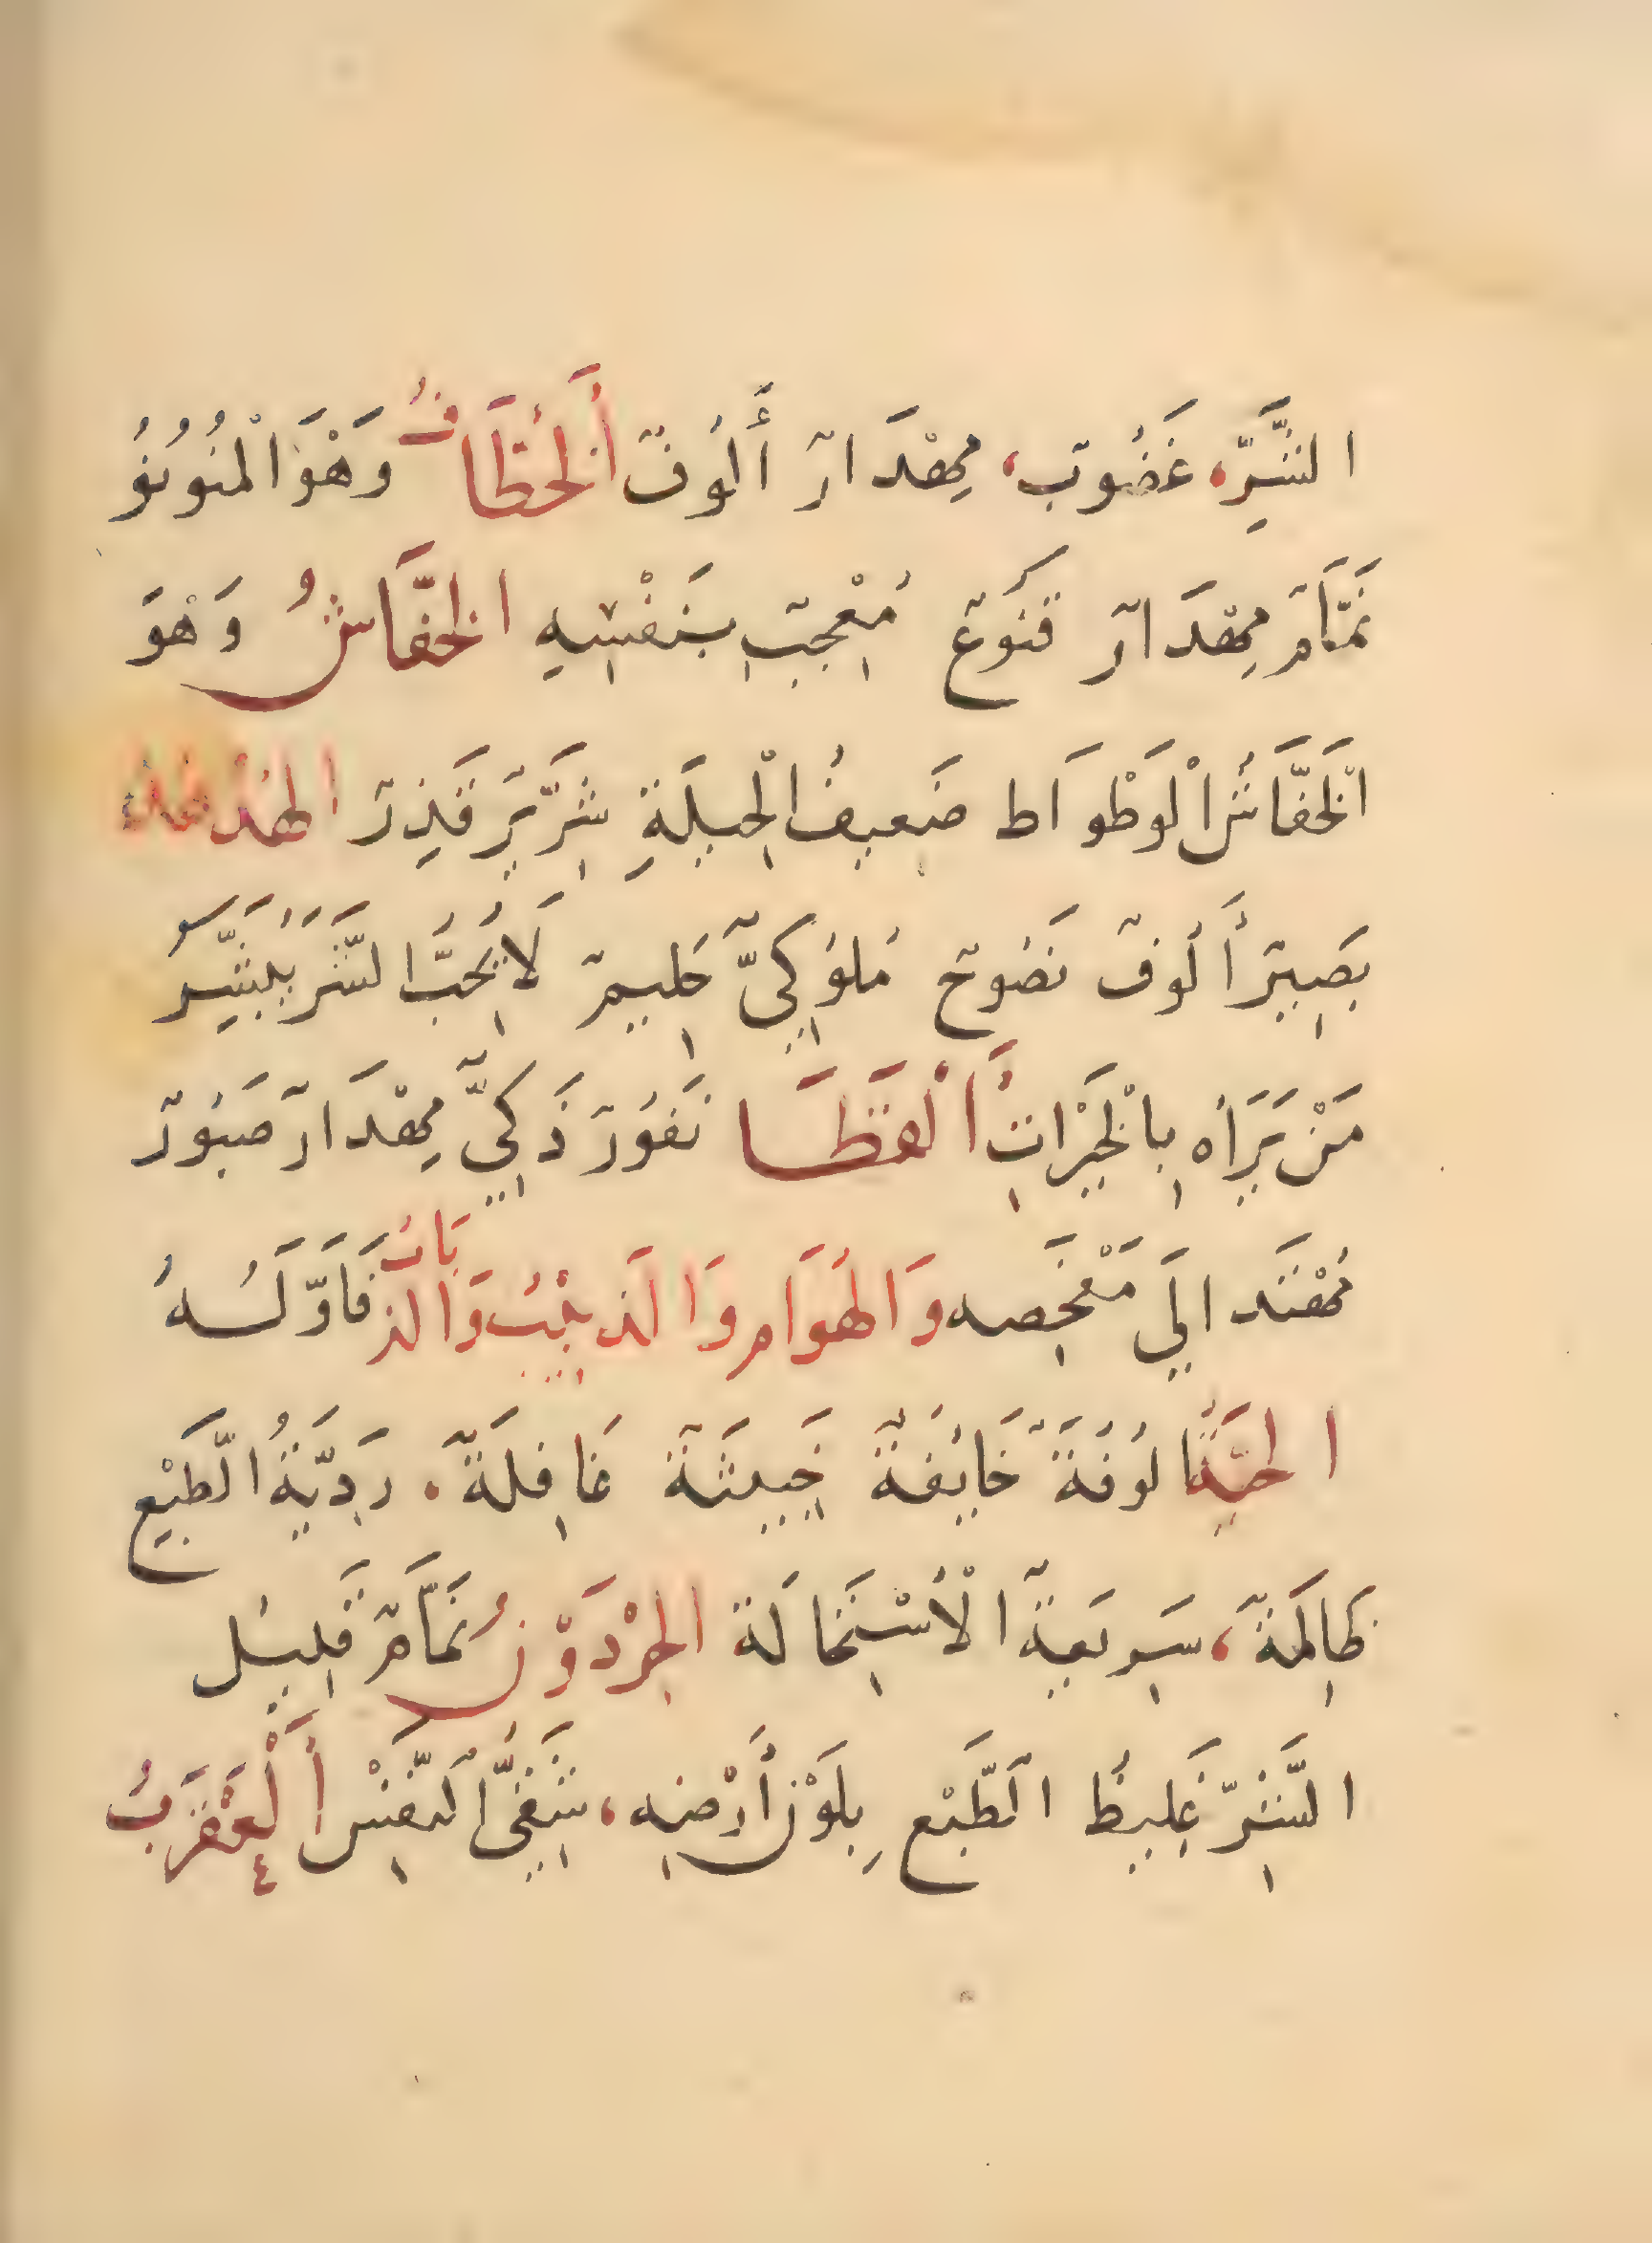 الشَّرِّ، غَضُوب، مِهْدَار أَلُوف أَلخُطَافُ وَهْوَ الْمُنُونُو
نَمَّام مِهْدَار قَنُوع مُعْجِب بِنَفْسِهِ الخفَّاشُ وَهْوَ
الخَفَّاشُ الْوَطْوَاط ضَعِيفُ الْحِيلَةِ شِرِّير قَذِر الهُدْهُد
بَصِير أَلُوف نَصُوح مُلُوكِيّ حَلِيم لَا يُحِبُّ الشَّرَ يُبَشِّر كُ
مَنْ يَرَاه بِالْخَيْرَاتِ أَلْقَطَا نَفُور ذَكِيّ مِهْدَار صَبُور
مُهْتَد الِي مَفْحَصه وَالهَوَام وَالذبِيبُ وَالذبَابُ فَاوّلُهُ
الحَيَّةُ الُوفَةَ خَايِفَة خَبِيثَة غَافِلَةَ. رَدِيَّةُ الطَّبْعِ
ظَالِمَة، سَرِيعَة الْأسْتِحَالَة الحِرْدَوْنُ نَمَّام قَلِيلُ
الشَّرِّ غَلِيظُ الطَّبْعِ بِلَوْنِ أَرْضِهِ، شَقِيُّ النَّفْسِ أَلْعَقْرَبُ
٤